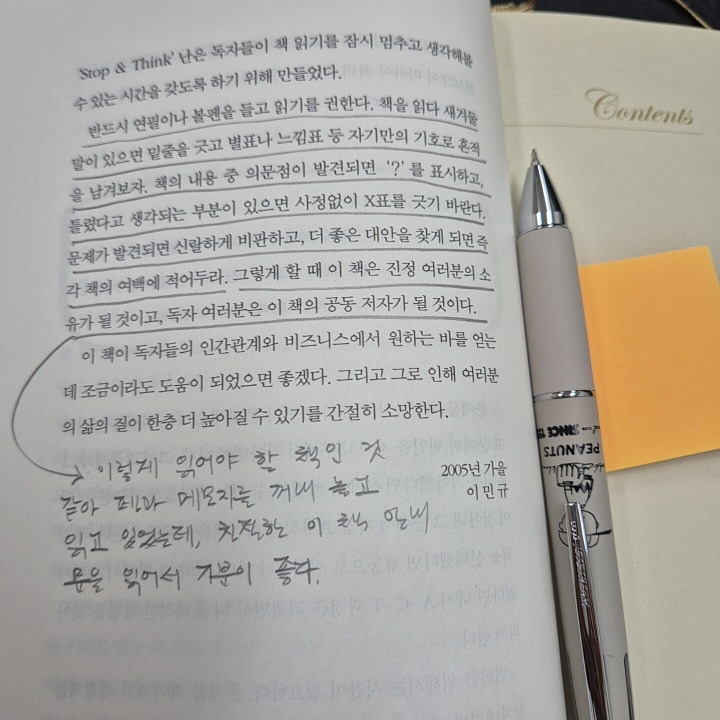 'Stop & Think' 난은 독자들이 책 읽기를 잠시 멈추고 생각해볼
수 있는 시간을 갖도록 하기 위해 만들었다.
반드시 연필이나 볼펜을 들고 읽기를 권한다. 책을 읽다 새겨둘
말이 있으면 밑줄을 긋고 별표나 느낌표 등 자기만의 기호로 흔적
을 남겨보자. 책의 내용 중 의문점이 발견되면 '?'를 표시하고,
틀렸다고 생각되는 부분이 있으면 사정없이 X표를 긋기 바란다.
문제가 발견되면 신랄하게 비판하고, 더 좋은 대안을 찾게 되면 즉
각 책의 여백에 적어두라. 그렇게 할 때 이 책은 진정 여러분의 소
유가 될 것이고, 독자 여러분은 이 책의 공동 저자가 될 것이다.
이 책이 독자들의 인간관계와 비즈니스에서 원하는 바를 얻는
데 조금이라도 도움이 되었으면 좋겠다. 그리고 그로 인해 여러분
의 삶의 질이 한층 더 높아질 수 있기를 간절히 소망한다.
2005년 가을
이민규
이렇게 읽어야 할 책인 것
같아 펜과 메모지를 꺼내 놓고
읽고 있었는데, 친절한 이 책 안내
문을 읽어서 기분이 좋다.
Contents
PEANUTS
SINCE